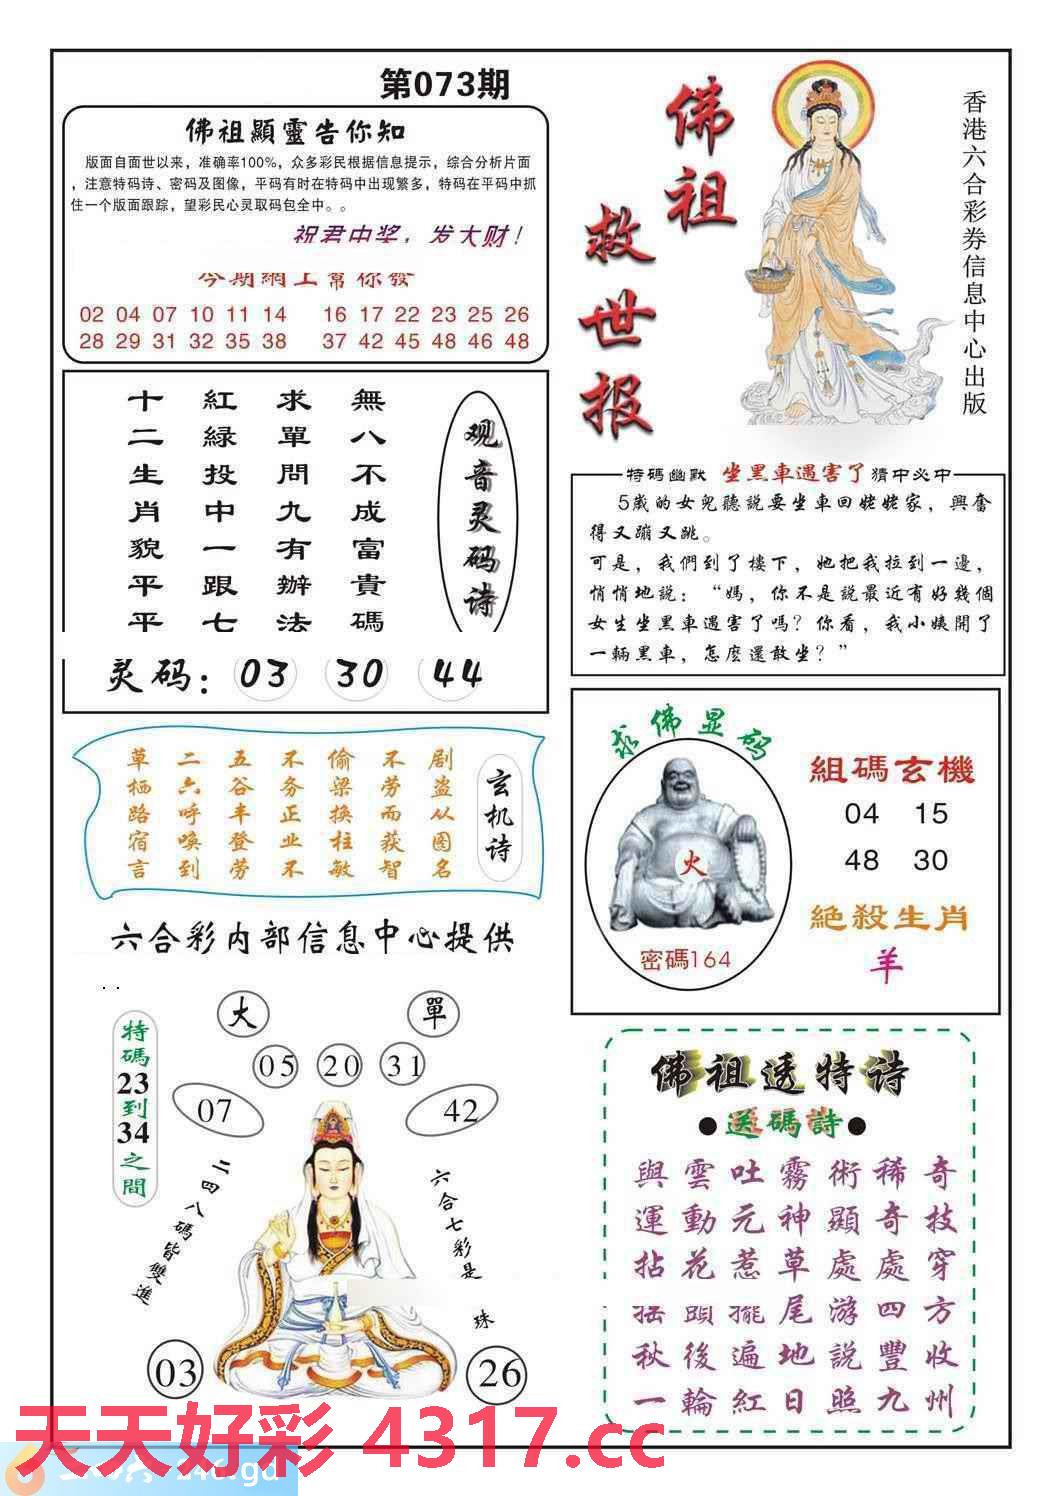 第073期
佛祖顯靈告你知
版面自面世以来，准确率100%，众多彩民根据信息提示，综合分析片面
，注意特码诗、密码及图像，平码有时在特码中出现繁多，特码在平码中抓
住一个版面跟踪，望彩民心灵取码包全中。。
祝君中奖，发大财！
今期網上幫你發
02 04 07 10 11 14 16 17 22 23 25 26
28 29 31 32 35 38 37 42 45 48 46 48
佛祖
救世报
香港六合彩券信息中心出版
观音灵码诗
無八不成富貴碼
求單問九有辦法
紅綠投中一跟七
十二生肖貌平平
灵码：03 30 44
特码幽默 坐黑車遇害了 猜中必中
5歲的女兒聽説要坐車回姥姥家，興奮
得又蹦又跳。
可是，我們到了樓下，她把我拉到一邊，
悄悄地説：“媽，你不是説最近有好幾個
女生坐黑車遇害了嗎？你看，我小姨開了
一輛黑車，怎麽還敢坐？”
玄机诗
剧盗从图名
不劳而获智
偷梁换柱敏
不务正业不
五谷丰登劳
二六呼唤到
草栖路宿言
六合彩内部信息中心提供
求佛显码
火
密碼164
組碼玄機
04 15
48 30
絕殺生肖
羊
特碼23到34之間
大 單
05 20 31
07 42
二四八碼皆雙進
六合七彩是 珠
03 26
佛祖透特诗
●送碼詩●
與雲吐霧術稀奇
運動元神顯奇技
拈花惹草處處穿
摇頭擺尾游四方
秋後遍地説豐收
一輪紅日照九州
天天好彩 4317.cc
246.gd